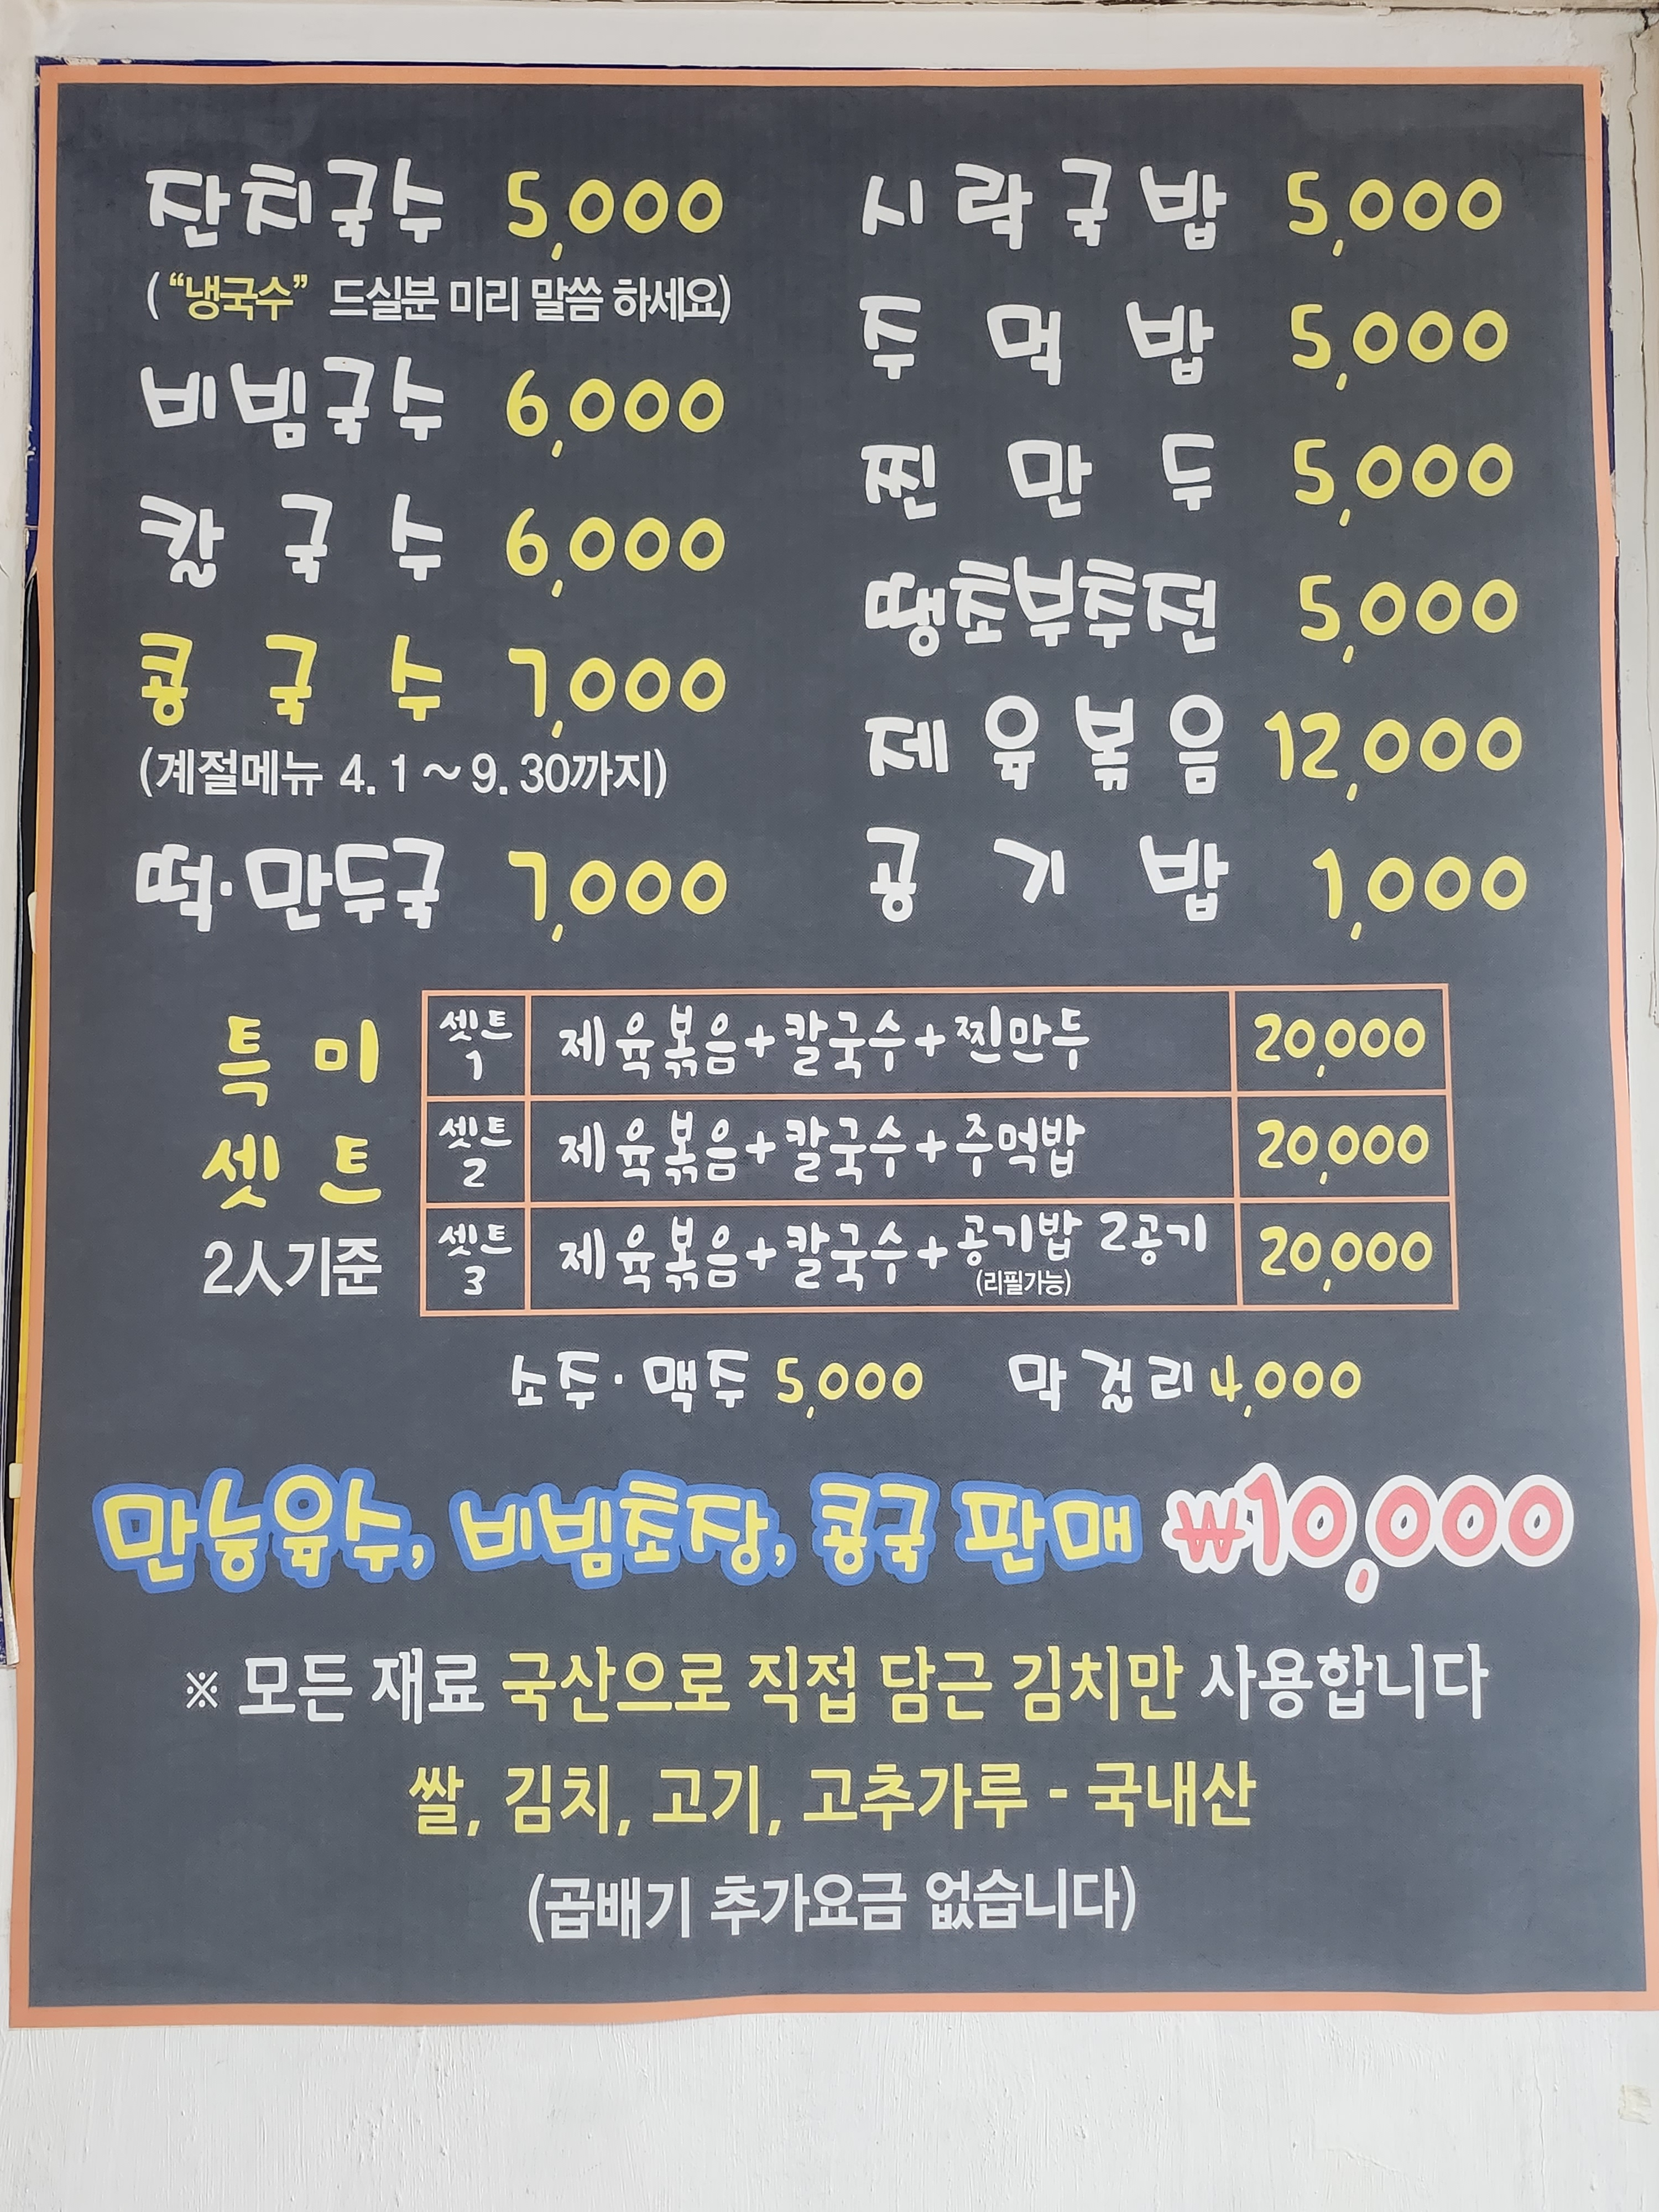 잔치국수 5,000
("냉국수" 드실분 미리 말씀 하세요)
비빔국수 6,000
칼국수 6,000
콩국수 7,000
(계절메뉴 4. 1 ~ 9. 30까지)
떡·만두국 7,000
시락국밥 5,000
주먹밥 5,000
찐만두 5,000
땡초부추전 5,000
제육볶음 12,000
공기밥 1,000
특미
셋트
2人기준
셋트 1 제육볶음+칼국수+찐만두 20,000
셋트 2 제육볶음+칼국수+주먹밥 20,000
셋트 3 제육볶음+칼국수+공기밥 2공기 20,000
(리필가능)
소주·맥주 5,000 막걸리 4,000
만능육수, 비빔초장, 콩국 판매 ₩10,000
※ 모든 재료 국산으로 직접 담근 김치만 사용합니다
쌀, 김치, 고기, 고추가루 - 국내산
(곱배기 추가요금 없습니다)